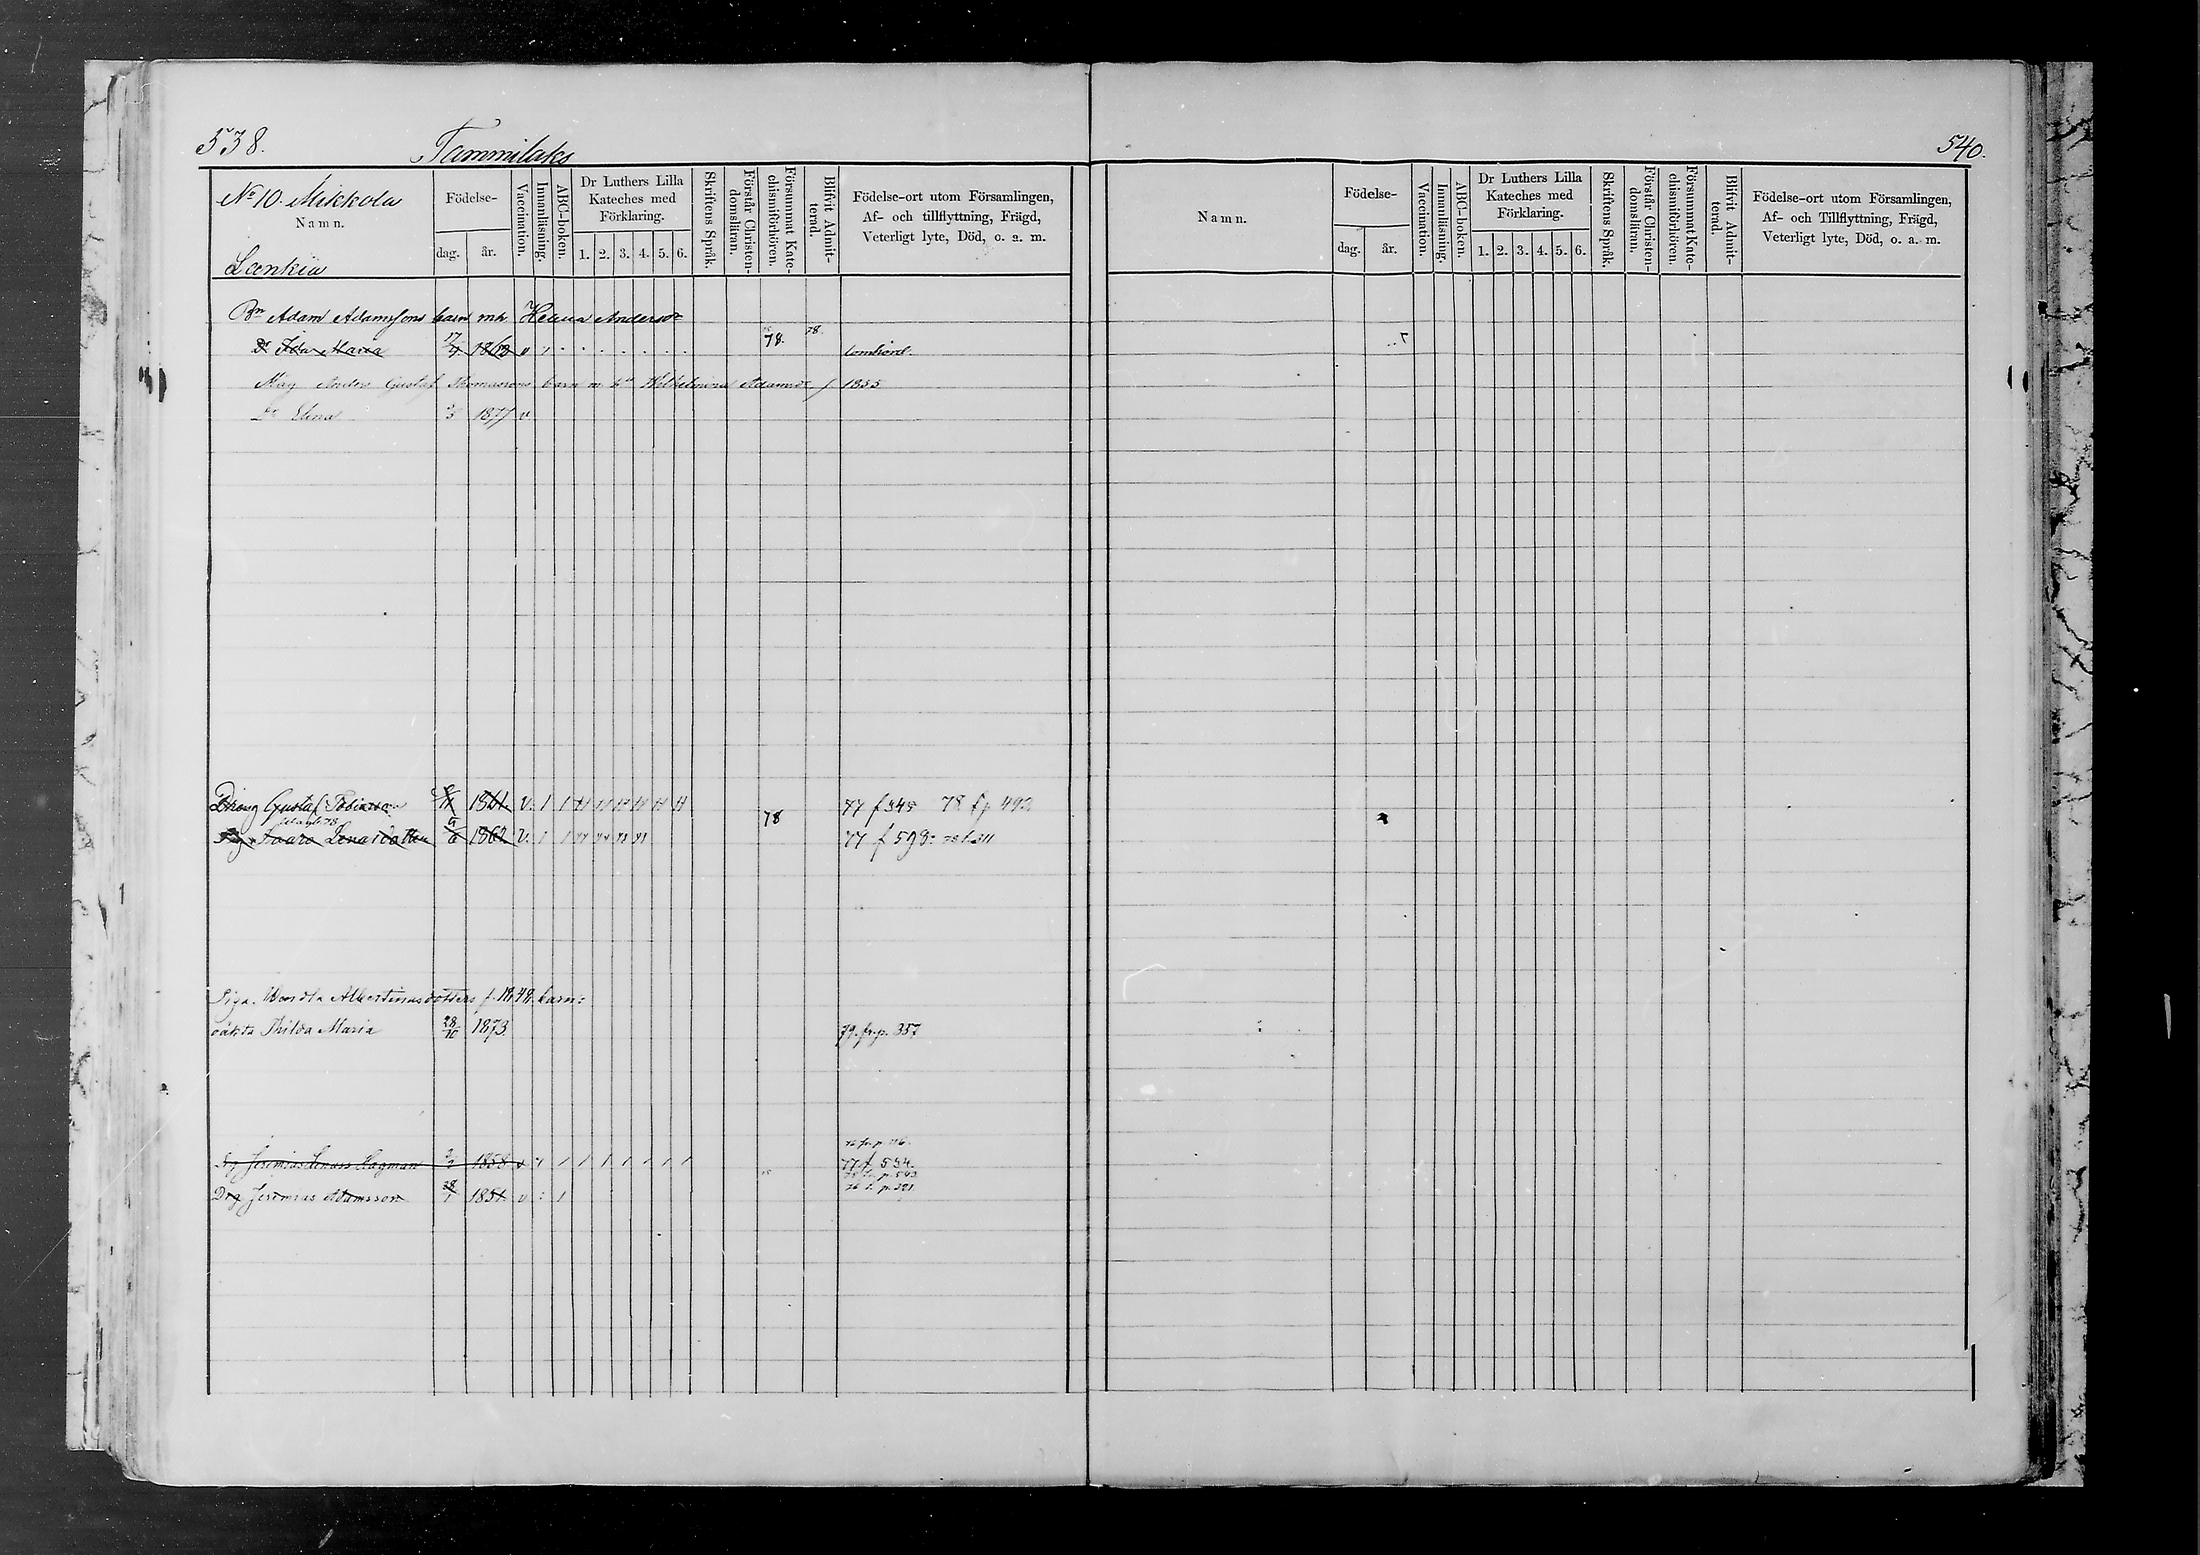 538.
Tammilaks
No 10 Mikkola
Namn.
Födelse-
dag. år.
Vaccination.
Innanläsning.
ABC-boken.
Dr Luthers Lilla Kateches med Förklaring.
1. 2. 3. 4. 5. 6.
Skriftens Språk.
Förstår Christendomsläran.
Försummat Katechismiförhören.
Blifvit Admitterad.
Födelse-ort utom Församlingen,
Af- och tillflyttning, Frägd,
Veterligt lyte, Död, o. a. m.
Bn Adam Adamssons barn mh
Dr Ida Maria 17/9 1863 v 78. 78.
Anders Gustaf Thomassons barn m h Wilhelmina Adamsdr f 1855
Dr Elina 1877 v
Dräng Gustaf Tobiasson 1861. v. 1 1 78 77 f 345 78 f p 492
1862 v. 1 1 77 f 598
Piga Wendla Albertinasdotters f. 1848 barn:
oäkta Hilda Maria 28/10 1873. 79. fr. p. 357
Drg Jeremias Hagman 1858 v 1 1 1 1 1 1 1 77 f 534.
Drg Jeremias Adamsson 28/1 1851 v : 1
540.
Namn.
Födelse-
dag. år.
Vaccination.
Innanläsning.
ABC-boken.
Dr Luthers Lilla Kateches med Förklaring.
1. 2. 3. 4. 5. 6.
Skriftens Språk.
Förstår Christendomsläran.
Försummat Katechismiförhören.
Blifvit Admitterad.
Födelse-ort utom Församlingen,
Af- och Tillflyttning, Frägd,
Veterligt lyte, Död, o. a. m.